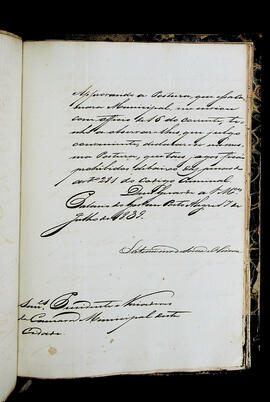 Approvando a Postura, que essa Ca-
mara Municipal me enviou
com officio de 16 do corrente, te-
nho a observar lhes que julgo
conveniente, declarar na mes-
ma Postura, que taes jogos ficão
prohibidos debaixo das penas do
Artº 281 do Codigo Criminal
Deos Guarde a V. Mces
Palacio do Governo Porto Alegre
Julho de 1839.
Saturnino de Souza e Oliveira
Senrs Presidente Vereadores
da Camara Municipal desta
Cidade